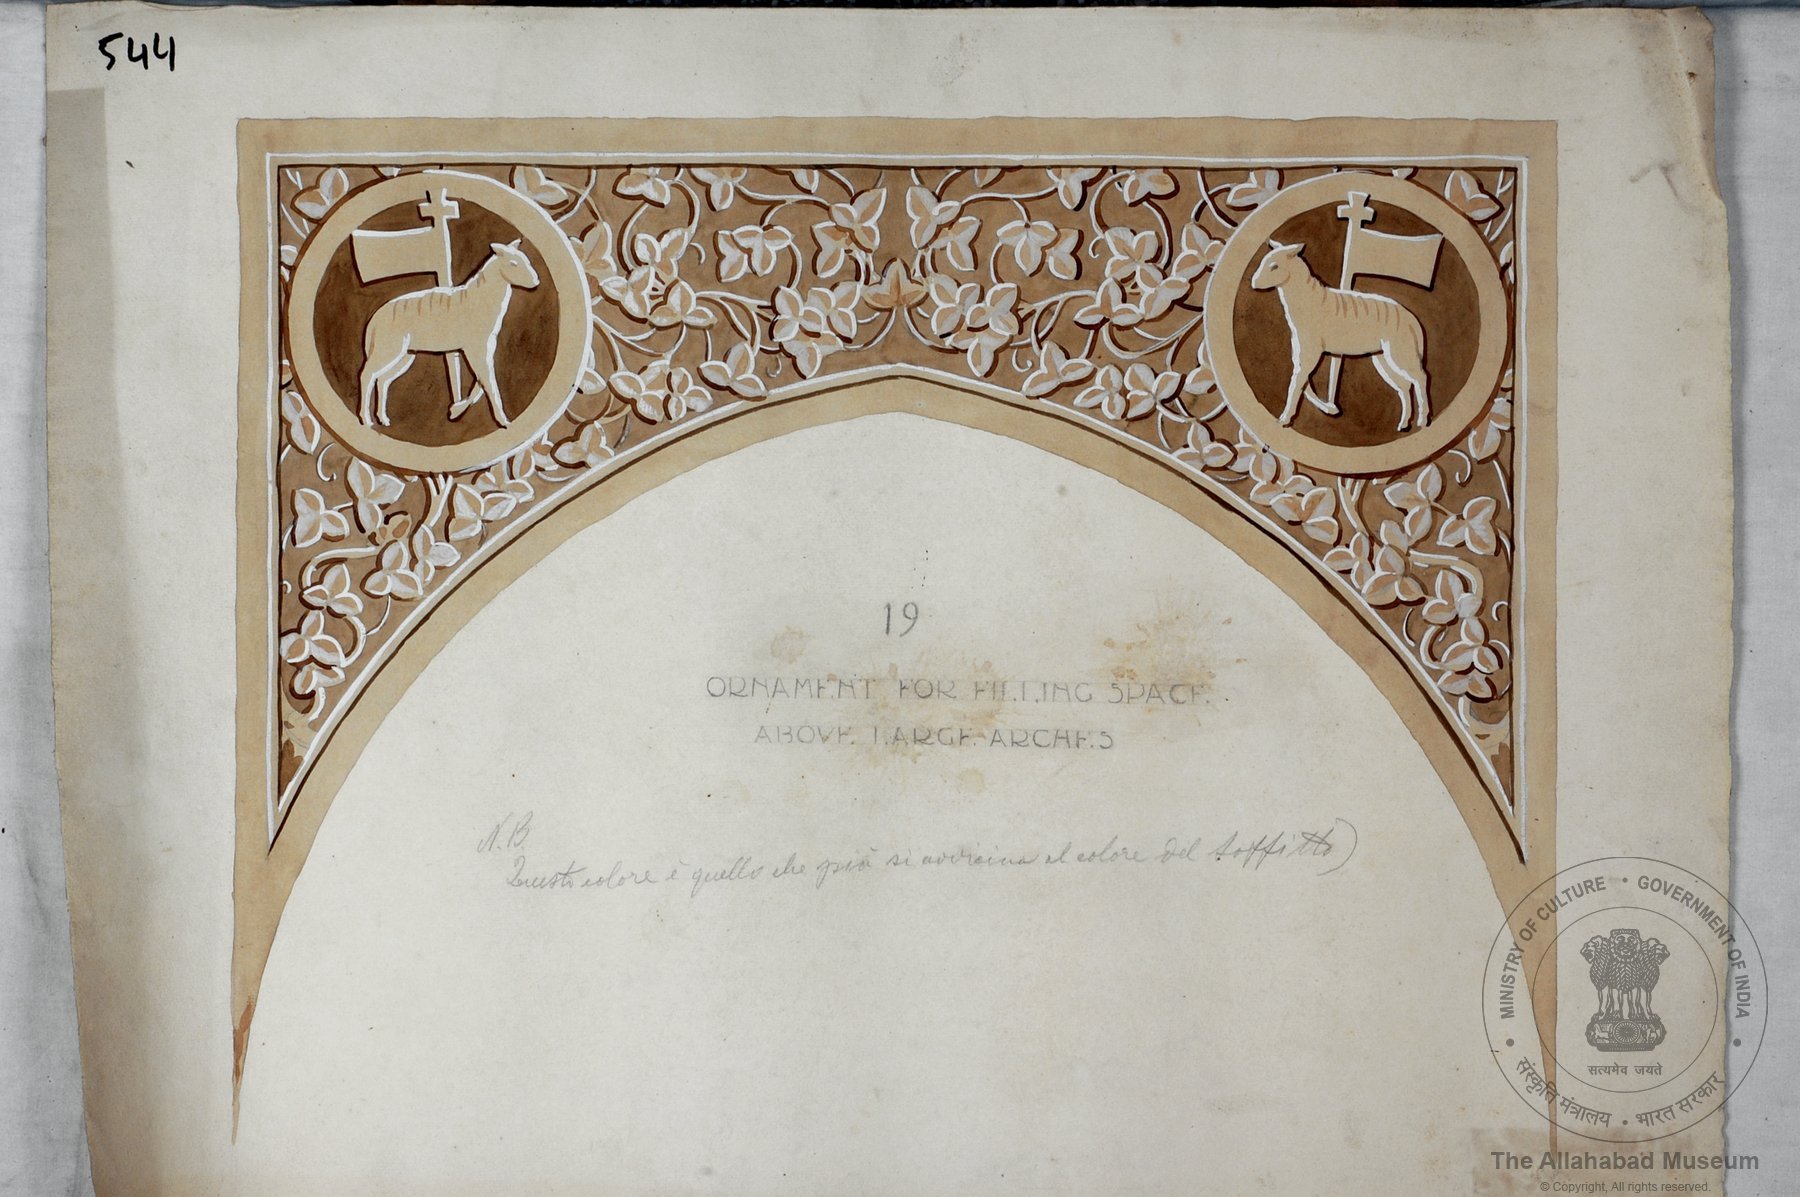 544
19
ORNAMENT FOR FILLING SPACE.
ABOVE LARGE ARCHES
N.B.
Questo colore è quello che più si avvicina al colore del soffitto)
MINISTRY OF CULTURE • GOVERNMENT OF INDIA
सत्यमेव जयते
संस्कृति मंत्रालय • भारत सरकार
The Allahabad Museum
© Copyright, All rights reserved.